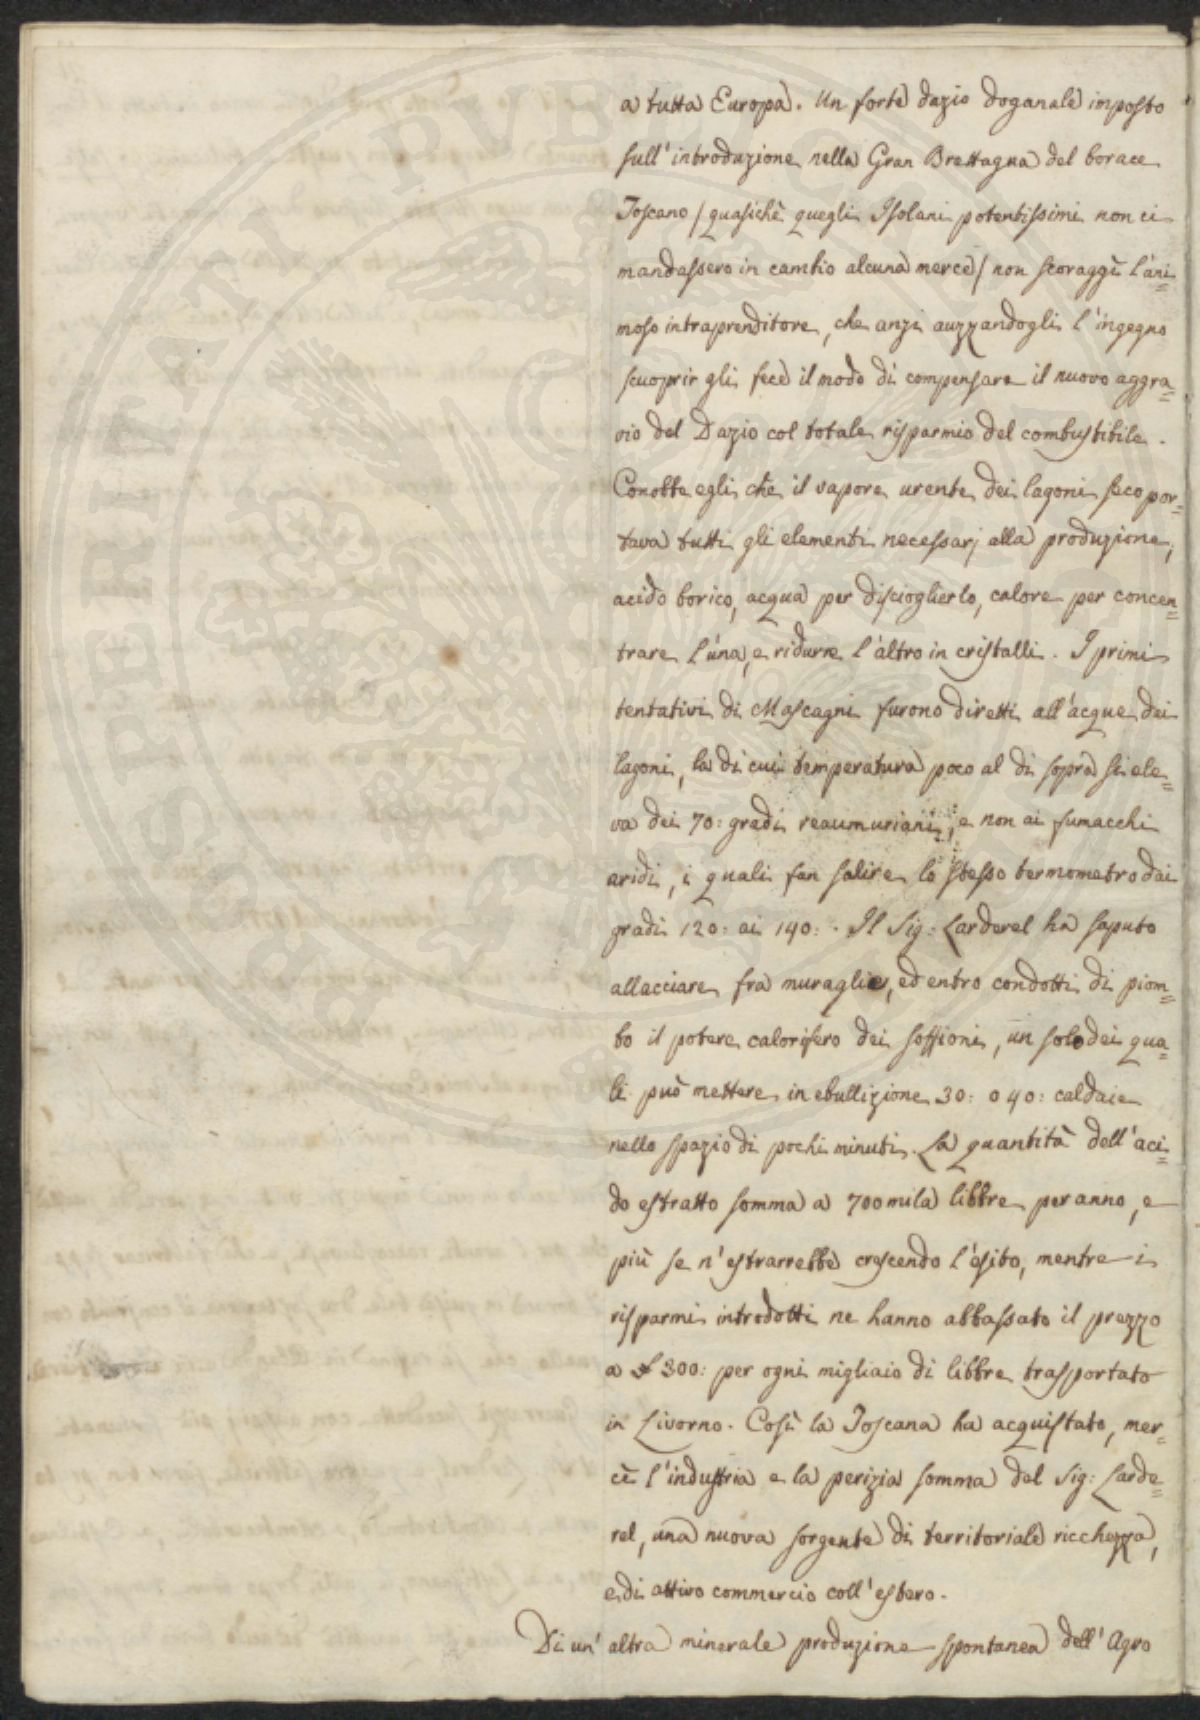 a tutta Europa. Un forte dazio doganale imposto
sull'introduzione nella Gran Brettagna del borace
Toscano / quasichè quegli Isolani potentissimi non ci
mandassero in cambio alcuna mercè / non scoraggì l'ani=
moso intraprenditore, che anzi auzzandogli l'ingegno
scuoprir gli fece il modo di compensare il nuovo aggra=
vio del Dazio col totale risparmio del combustibile.
Conobbe egli che il vapore urente dei lagoni seco por=
tava tutti gli elementi necessarj alla produzione,
acido borico, acqua per discioglierlo, calore per concen=
trare l'una, e ridurre l'altro in cristalli. I primi
tentativi di Mascagni furono diretti all'acque dei
lagoni, la di cui temperatura poco al di sopra si ele=
va dei 70: gradi reaumuriani, e non ai fumacchi
aridi, i quali fan salire lo stesso termometro dai
gradi 120: ai 140:. Il Sig: Larderel ha saputo
allacciare fra muraglie, ed entro condotti di piom=
bo il potere calorifero dei soffioni, un solo dei qua=
li può mettere in ebullizione 30: o 40: caldaie
nello spazio di pochi minuti. La quantità dell'aci=
do estratto somma a 700 mila libbre per anno, e
più se n'estrarrebbe crescendo l'esito, mentre i
risparmi introdotti ne hanno abbassato il prezzo
a £ 300: per ogni migliaio di libbre trasportato
in Livorno. Così la Toscana ha acquistato, mer=
cè l'industria e la perizia somma del Sig: Larde=
rel, una nuova sorgente di territoriale ricchezza,
e di attivo commercio coll'estero.
Di un'altra minerale produzione spontanea dell'Agro